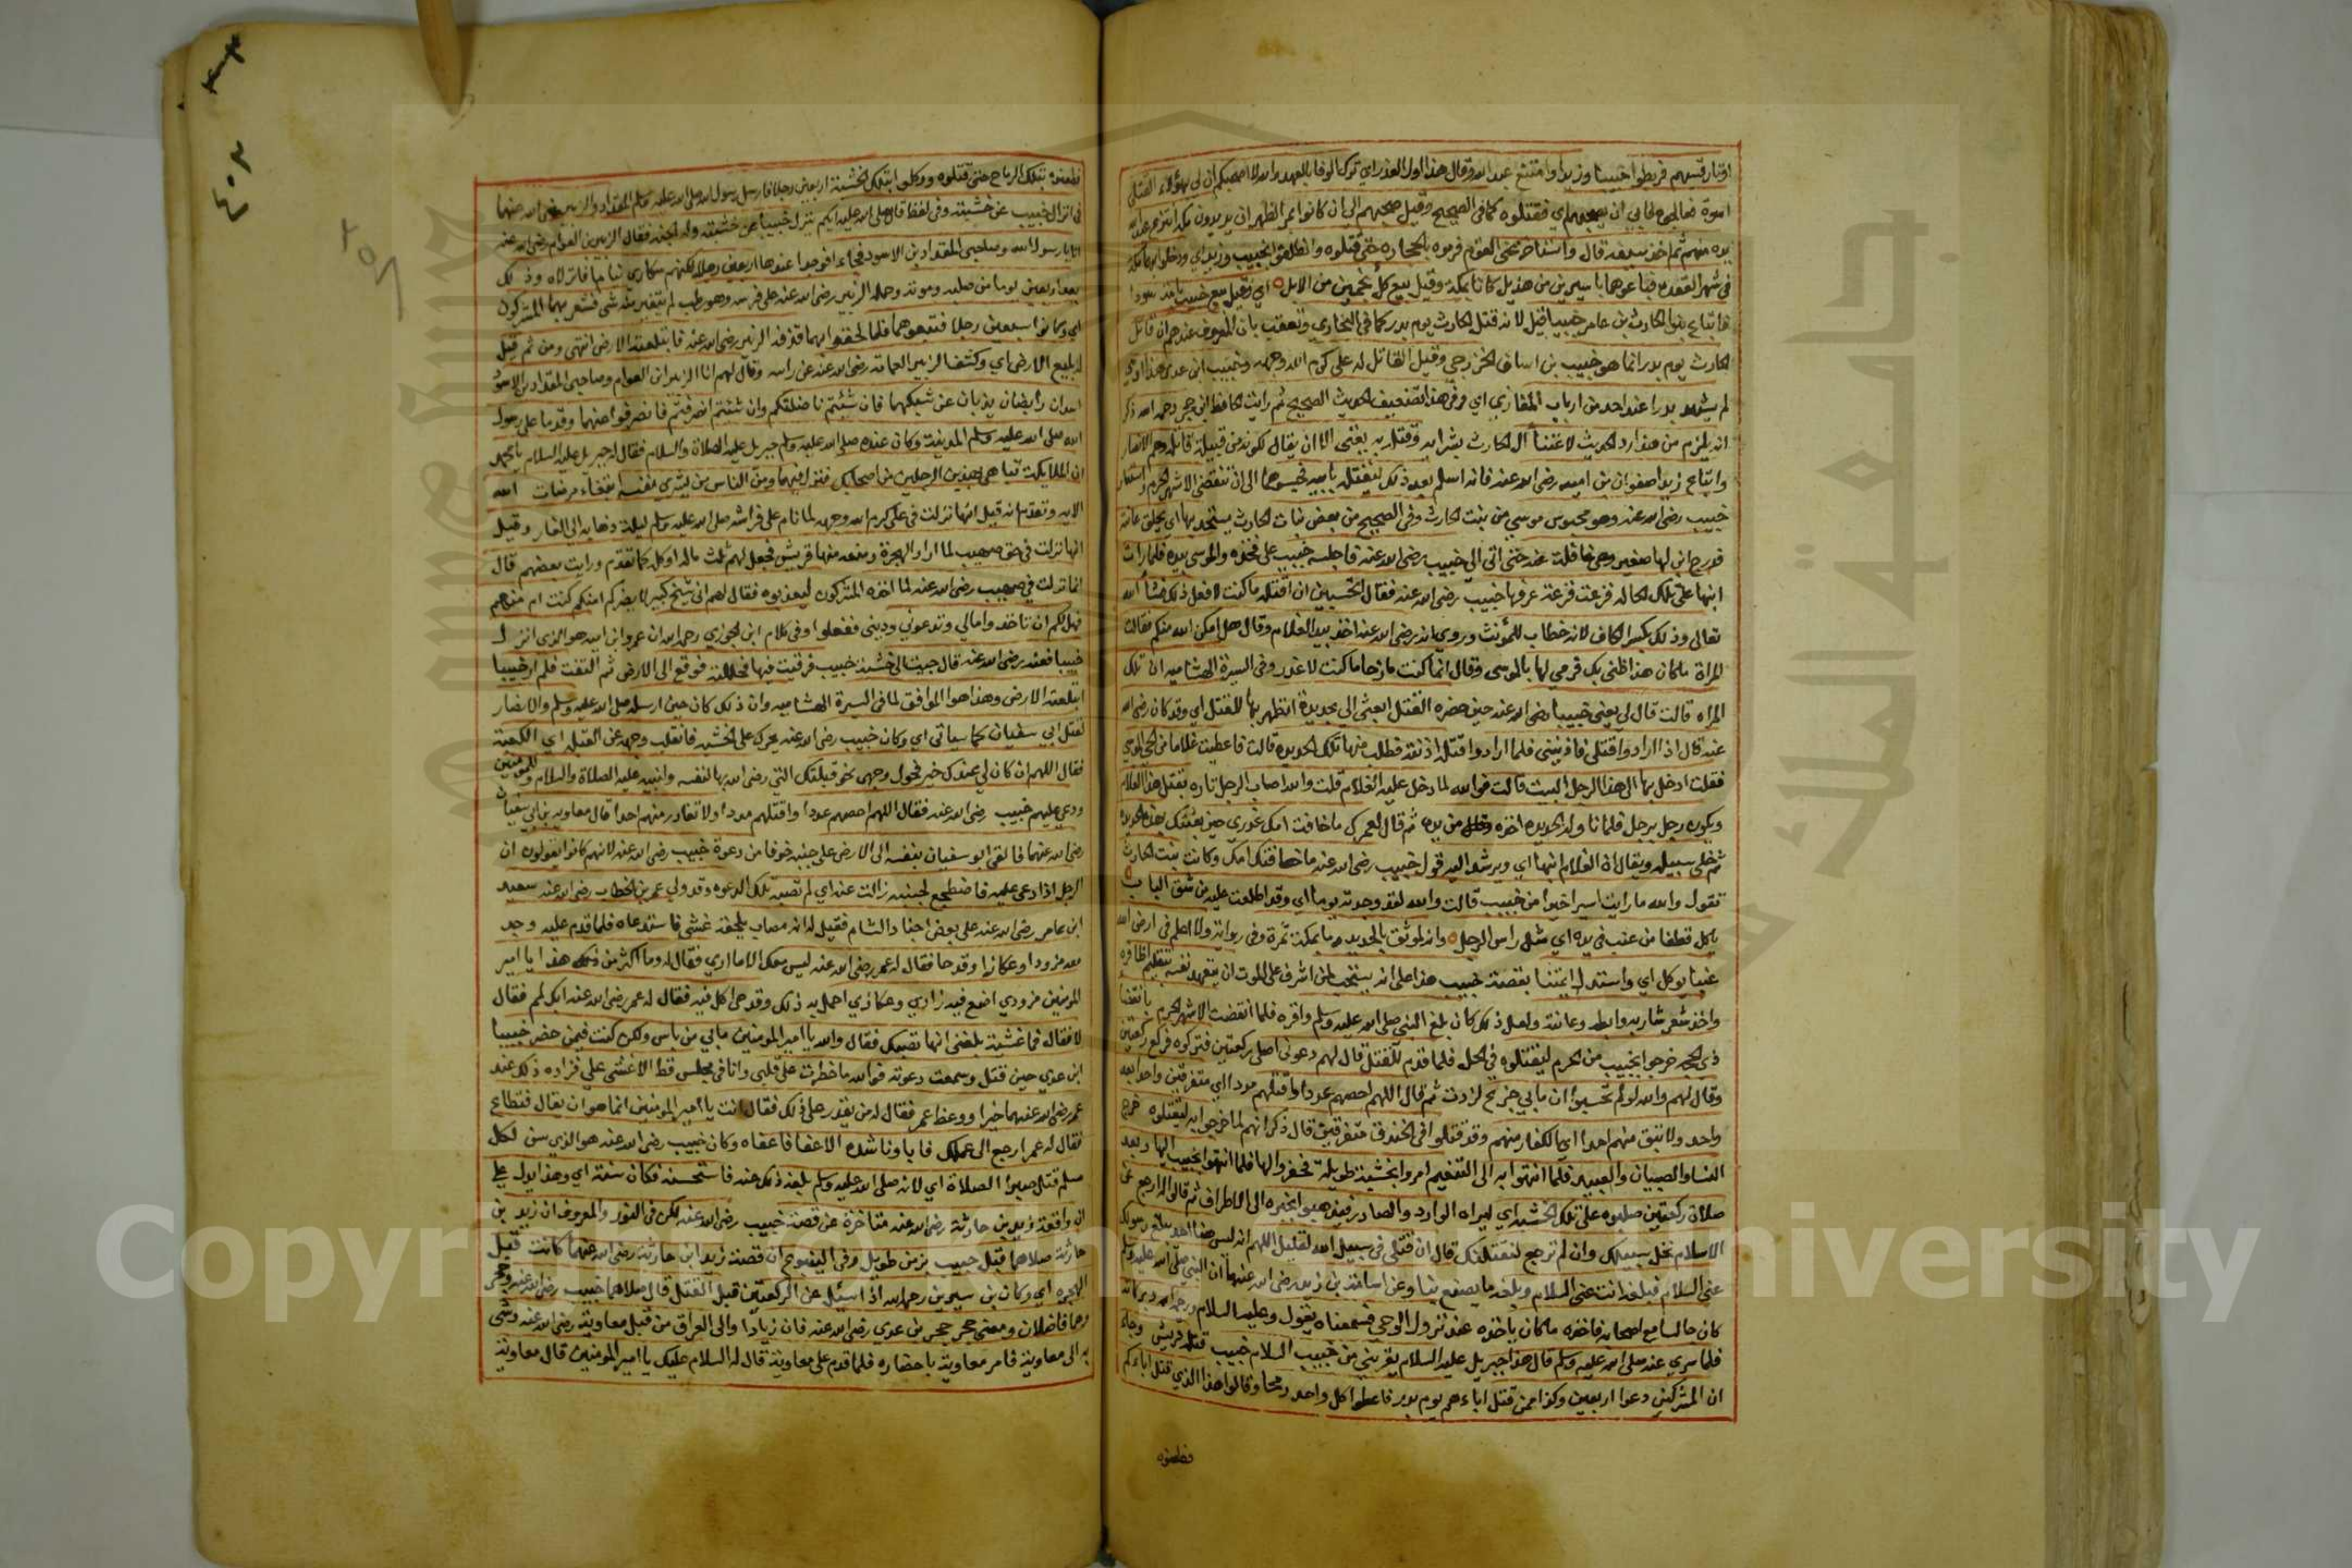 اوتار قسيهم فربطوا خبيبا وزيدا وامتنع عبد الله وقال هذا اول الغدر اي ترك الوفا بالعهد والله لا اصحبكم ان لي بهؤلاء القتلى
اسوة فعالجوه فابي ان يصحبهم اي فقتلوه كما في الصحيح وقيل صحبهم الي ان كانوا بمر الظهران يريدون مكة انتزع عبد الله
يده منهم ثم اخذ سيفه قال واستاخر عن القوم فرموه بالحجارة حتى قتلوه وانطلقوا بخبيب وزيد اي ودخلوا بهما مكة
في شهر القعدة فباعوهما باسيرين من هذيل كانا بمكة وقيل بيع كل بخمسين من الابل اي وقيل بيع خبيب بامة سودا
فابتاع بنوا الحارث بن عامر خبيبا قيل لانه قتل الحارث يوم بدر كما في البخاري وتعقب بان المعروف عندهم ان قاتل
الحارث يوم بدر انما هو خبيب بن اساف الخزرجي وقيل القاتل له علي كرم الله وجهه وخبيب ابن عدي هذا اوسي
لم يشهد بدرا عند احد من ارباب المغازي اي وفي هذا تضعيف الحديث الصحيح ثم رايت الحافظ ابن حجر رحمه الله ذكر
انه يلزم من هذا رد الحديث لاعتنا ال الحارث بشرايه وقتله به يغني الا ان يقال لكونه من قبيلة قاتله وهم الانصار
وابتاع زيدا صفوان بن امية رضي الله عنه فانه اسلم بعد ذلك ليقتله بابيه فحبسوهما الى ان تنقضي الاشهر الحرم واستعار
خبيب رضي الله عنه وهو محبوس موسي من بنت الحارث وفي الصحيح من بعض بنات الحارث يستحد بها اي يحلق عانته
فدرج ابن لها صغير وهي غافلة عنه حتى اتى الي خبيب رضي الله عنه فاجلسه خبيب على فخذه والموسى بيده فلما رات
ابنها على تلك الحالة فزعت فزعة عرفها خبيب رضي الله عنه فقال اتخشين ان اقتله ما كنت لافعل ذلك ان شاء الله
تعالى وذلك بكسر الكاف لانه خطاب للمؤنث وروي انه رضي الله عنه اخذ بيد الغلام وقال هل امكن الله منكم فقالت
المراة ما كان هذا ظني بك فرمي لها بالموسى وقال انما كنت مازحا ما كنت لاغدر وفي السيرة الهشامية ان تلك
المراه قالت قال لي يعني خبيبا رضي الله عنه حين حضره القتل ابعثي الي بحديدة اتطهر بها للقتل اي وقد كان رضي الله
عنه قال اذا ارادوا قتلي فاذنيني فلما ارادوا قتله اذنته فطلب منها تلك الحديده قالت فاعطيت غلاما من الحي الموسى
فقلت ادخل بها الى هذا الرجل البيت قالت فوالله لما دخل عليه الغلام قلت والله اصاب الرجل ثاره بقتل هذا الغلام
ويكون رجل برجل فلما ناوله الحديده اخذه من يده ثم قال لعمرك ما خافت امك غدري حين بعثتك بهذه الحديده
ثم خلى سبيله ويقال ان الغلام ابنها اي ويرشد اليه قول خبيب رضي الله عنه ما خافت امك وكانت بنت الحارث
تقول والله ما رايت اسيرا خيرا من خبيب قالت والله لقد وجدته يوما اي وقد اطلعت عليه من شق الباب
ياكل قطفا من عنب في يده اي مثل راس الرجل وانه لموثق بالحديد وما بمكة ثمرة وفي رواية ولا اعلم في ارض الله
عنبا يوكل اي واستدل ايمتنا بقصة خبيب هذا على انه يستحب لمن اشرف على الموت ان يتعهد نفسه بتقليم اظافره
واخذ شعر شاربه وابطه وعانته ولعل ذلك كان بلغ النبي صلى الله عليه وسلم واقره فلما انقضت الاشهر الحرم بانقضا
ذي الحجه خرجوا بخبيب من الحرم ليقتلوه في الحل فلما قدم للقتل قال لهم دعوني اصلي ركعتين فتركوه فركع ركعتين
وقال لهم والله لولا تحسبوا ان ما بي جزع لزدت ثم قال اللهم احصهم عددا واقتلهم بددا اي متفرقين واحدا بعد
واحد ولا تبق منهم احدا اي الكفار منهم وقد قتلوا في الخندق متفرقين قال ذكر انهم لما خرجوا به ليقتلوه خرج
النسا والصبيان والعبيد فلما انتهوا به الى التنعيم امروا بخشبة طويلة فحفروا لها فلما انتهوا بخبيب اليها وبعد
صلاة ركعتين صلبوه على تلك الخشبة اي ليراه الوارد والصادر فيذهبوا بخبره الى الاطراف ثم قالوا له ارجع عن
الاسلام نخل سبيلك وان لم ترجع لنقتلنك قال ان قتلي في سبيل الله لقليل اللهم انه ليس هنا احد يبلغ رسولك
عني السلام فبلغه انت عني السلام وبلغه ما يصنع بنا وعن اسامة بن زيد رضي الله عنهما ان النبي صلى الله عليه وسلم
كان جالسا مع اصحابه فاخذه ما كان ياخذه عند نزول الوحي فسمعناه يقول وعليه السلام ورحمة الله وبركاته
فلما سري عنه صلى الله عليه وسلم قال هذا جبريل عليه السلام يقرئني من خبيب السلام خبيب قتله قريش وجاء
ان المشركين دعوا اربعين ولدا ممن قتل اباءهم يوم بدر فاعطوا كل واحد رمحا وقالوا هذا الذي قتل اباءكم
فطعنوه
فطعنوه بتلك الرماح حتى قتلوه ووكلوا بتلك الخشبة اربعين رجلا فارسل رسول الله صلى الله عليه وسلم المقداد والزبير رضي الله عنهما
في انزال خبيب عن خشبته وفي لفظ قال صلى الله عليه ايكم ينزل خبيبا عن خشبته وله الجنة فقال الزبير بن العوام رضي الله عنه
انا يا رسول الله وصاحبي المقداد بن الاسود فجاءا فوجدا عندها اربعين رجلا لكنهم سكاري نياما فانزلاه وذلك
بعد اربعين يوما من صلبه وموته وحمله الزبير رضي الله عنه على فرسه وهو رطب لم يتغير منه شي فشعر بهما المشركون
اي وكانوا سبعين رجلا فتبعوهما فلما لحقوا بهما قذفه الزبير رضي الله عنه فابتلعته الارض انتهى ومن ثم قيل
له بليع الارض اي وكشف الزبير العمامة رضي الله عنه عن راسه وقال لهم انا الزبير ابن العوام وصاحبي المقداد بن الاسود
اسدان رابضان يذبان عن شبلهما فان شئتم ناضلتكم وان شئتم انصرفتم فانصرفوا عنهما وقدما على رسول
الله صلى الله عليه وسلم المدينة وكان عنده صلى الله عليه وسلم جبريل عليه الصلاة والسلام فقال له جبريل عليه السلام يا محمد
ان الملايكة تباهي بهذين الرجلين من اصحابك فنزل فيهما ومن الناس من يشري نفسه ابتغاء مرضات الله
الاية وتقدم انه قيل انها نزلت في علي كرم الله وجهه لما نام على فراشه صلى الله عليه وسلم ليلة ذهابه الى الغار وقيل
انها نزلت في حق صهيب لما اراد الهجرة ومنعه منها قريش فجعل لهم ثلث ماله او كله كما تقدم ورايت بعضهم قال
انما نزلت في صهيب رضي الله عنه لما اخذه المشركون ليعذبوه فقال لهم اني شيخ كبير لا يضركم امنكم كنت ام من غيركم
فهل لكم ان تاخذوا مالي وتدعوني وديني ففعلوا وفي كلام ابن الجوزي رحمه الله ان عمرو ابن امية هو الذي انزل
خبيبا فعنه رضي الله عنه قال جيت الى خشبة خبيب فرقيت فيها فحللته فوقع الى الارض ثم التفت فلم ار خبيبا
ابتلعته الارض وهذا هو الموافق لما في السيرة الهشامية وان ذلك كان حين ارسله صلى الله عليه وسلم والانصار
لقتل ابي سفيان كما سياتي اي وكان خبيب رضي الله عنه يحرك على الخشبة فانقلب وجهه عن القبلة اي الكعبة
فقال اللهم ان كان لي عندك خير فحول وجهي نحو قبلتك التي رضي الله بها لنفسه ولنبيه عليه الصلاة والسلام وللمومنين
ودعي عليهم خبيب رضي الله عنه فقال اللهم احصهم عددا واقتلهم بددا ولا تغادر منهم احدا قال معاوية بن ابي سفيان
رضي الله عنهما فالقى ابو سفيان بنفسه الى الارض على جنبه خوفا من دعوة خبيب رضي الله عنه لانهم كانوا يقولون ان
الرجل اذا دعي عليه فاضطجع لجنبه زالت عنه اي لم تصبه تلك الدعوه وقد ولي عمر بن الخطاب رضي الله عنه سعيد
ابن عامر رضي الله عنه على بعض اجناد الشام فقيل له انه مصاب يلحقه غشي فاستدعاه فلما قدم عليه وجد
معه مزودا وعكازا وقدحا فقال له عمر رضي الله عنه ليس معك الا ما اري فقال له وما اكثر من هذا يا امير
المومنين مزودي اضع فيه زادي وعكازي احمل به ذلك وقدحي اكل فيه فقال له عمر رضي الله عنه ابك لمم فقال
لا فقال فما غشية بلغني انها تصيبك فقال والله يا امير المومنين ما بي من باس ولكن كنت فيمن حضر خبيبا
ابن عدي حين قتل وسمعت دعوته فوالله ما خطرت على قلبي وانا في مجلس قط الا غشي علي فزاده ذلك عند
عمر رضي الله عنهما خيرا ووعظ عمر فقال له من يقدر على ذلك فقال انت يا امير المومنين انما هو ان تقال فتطاع
فقال له عمر ارجع الى عملك فابا وناشده الاعفا فاعفاه وكان خبيب رضي الله عنه هو الذي سن لكل
مسلم قتل صبرا الصلاة اي لانه صلى الله عليه وسلم بلغه ذلك عنه فاستحسنه فكان سنة اي وهذا يدل علي
ان واقعة زيد بن حارثة رضي الله عنه متاخرة عن قصة خبيب رضي الله عنه لكن في النور والمعروف ان زيد بن
حارثة صلاهما قبل خبيب بزمن طويل وفي الينبوع ان قصة زيد ابن حارثة رضي الله عنهما كانت قبل
الهجره اي وكان بن سيرين رحمه الله اذا سئل عن الركعتين قبل القتل قال صلاهما خبيب رضي الله عنه وحجر
وهما فاضلان ومعنى حجر حجر بن عدي رضي الله عنه فان زيادا والى العراق من قبل معاوية رضي الله عنه وشى
به الى معاوية فامر معاوية باحضاره فلما قدم على معاوية قال له السلام عليك يا امير المومنين قال معاوية
٤٠٢
٢٥٨
جامعة الملك سعود
Copyright © King Saud University